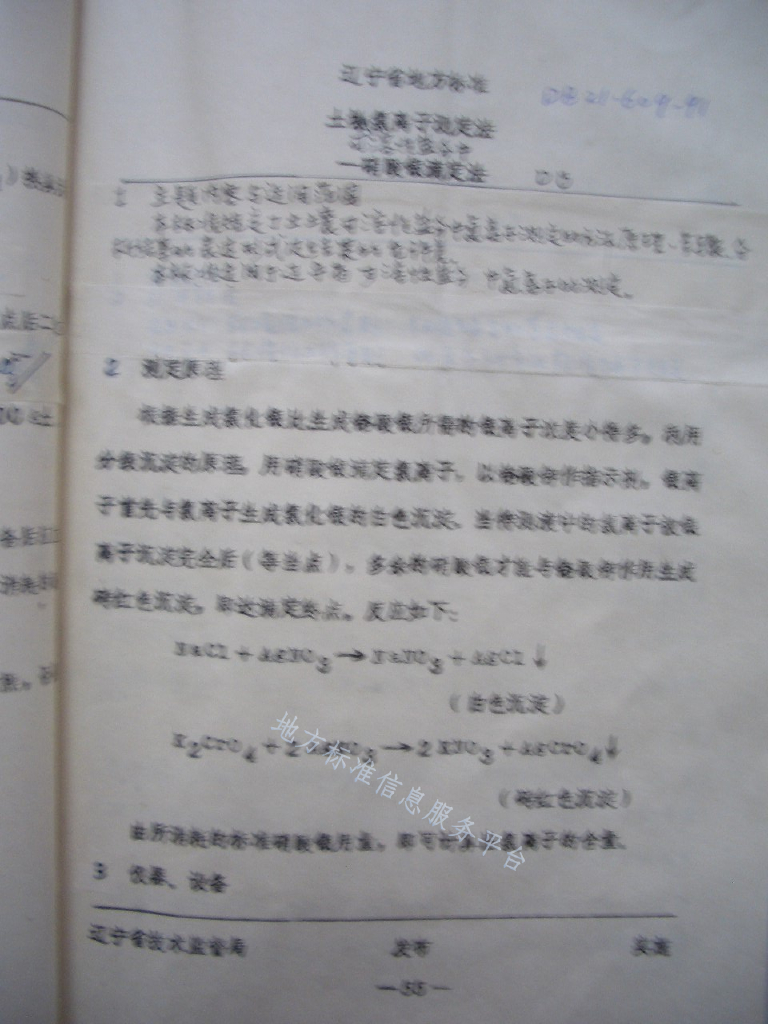 辽宁省地方标准
DB 21-609-91
土壤氯离子测定法
水溶性盐分中
—硝酸银滴定法 DB
1 主题内容与适用范围
本标准规定了土壤水溶性盐分中氯离子测定的方法原理、步骤、分
本标准适用于土壤水溶性盐分中氯离子的测定。
2 测定原理
根据生成氯化银比生成铬酸银所需的银离子浓度小得多。利用
分级沉淀的原理。用硝酸银滴定氯离子，以铬酸钾作指示剂，银离
子首先与氯离子生成氯化银的白色沉淀，当待测液中的氯离子被银
离子沉淀完全后（等当点），多余的硝酸银才能与铬酸钾作用生成
砖红色沉淀。即达滴定终点。反应如下：
NaCl + AgNO3 → NaNO3 + AgCl↓
（白色沉淀）
K2CrO4 + 2AgNO3 → 2KNO3 + AgCrO4↓
（砖红色沉淀）
由所消耗的标准硝酸银用量，即可计算出氯离子的含量。
3 仪器、设备
辽宁省技术监督局 发布 实施
—55—
地方标准信息服务平台